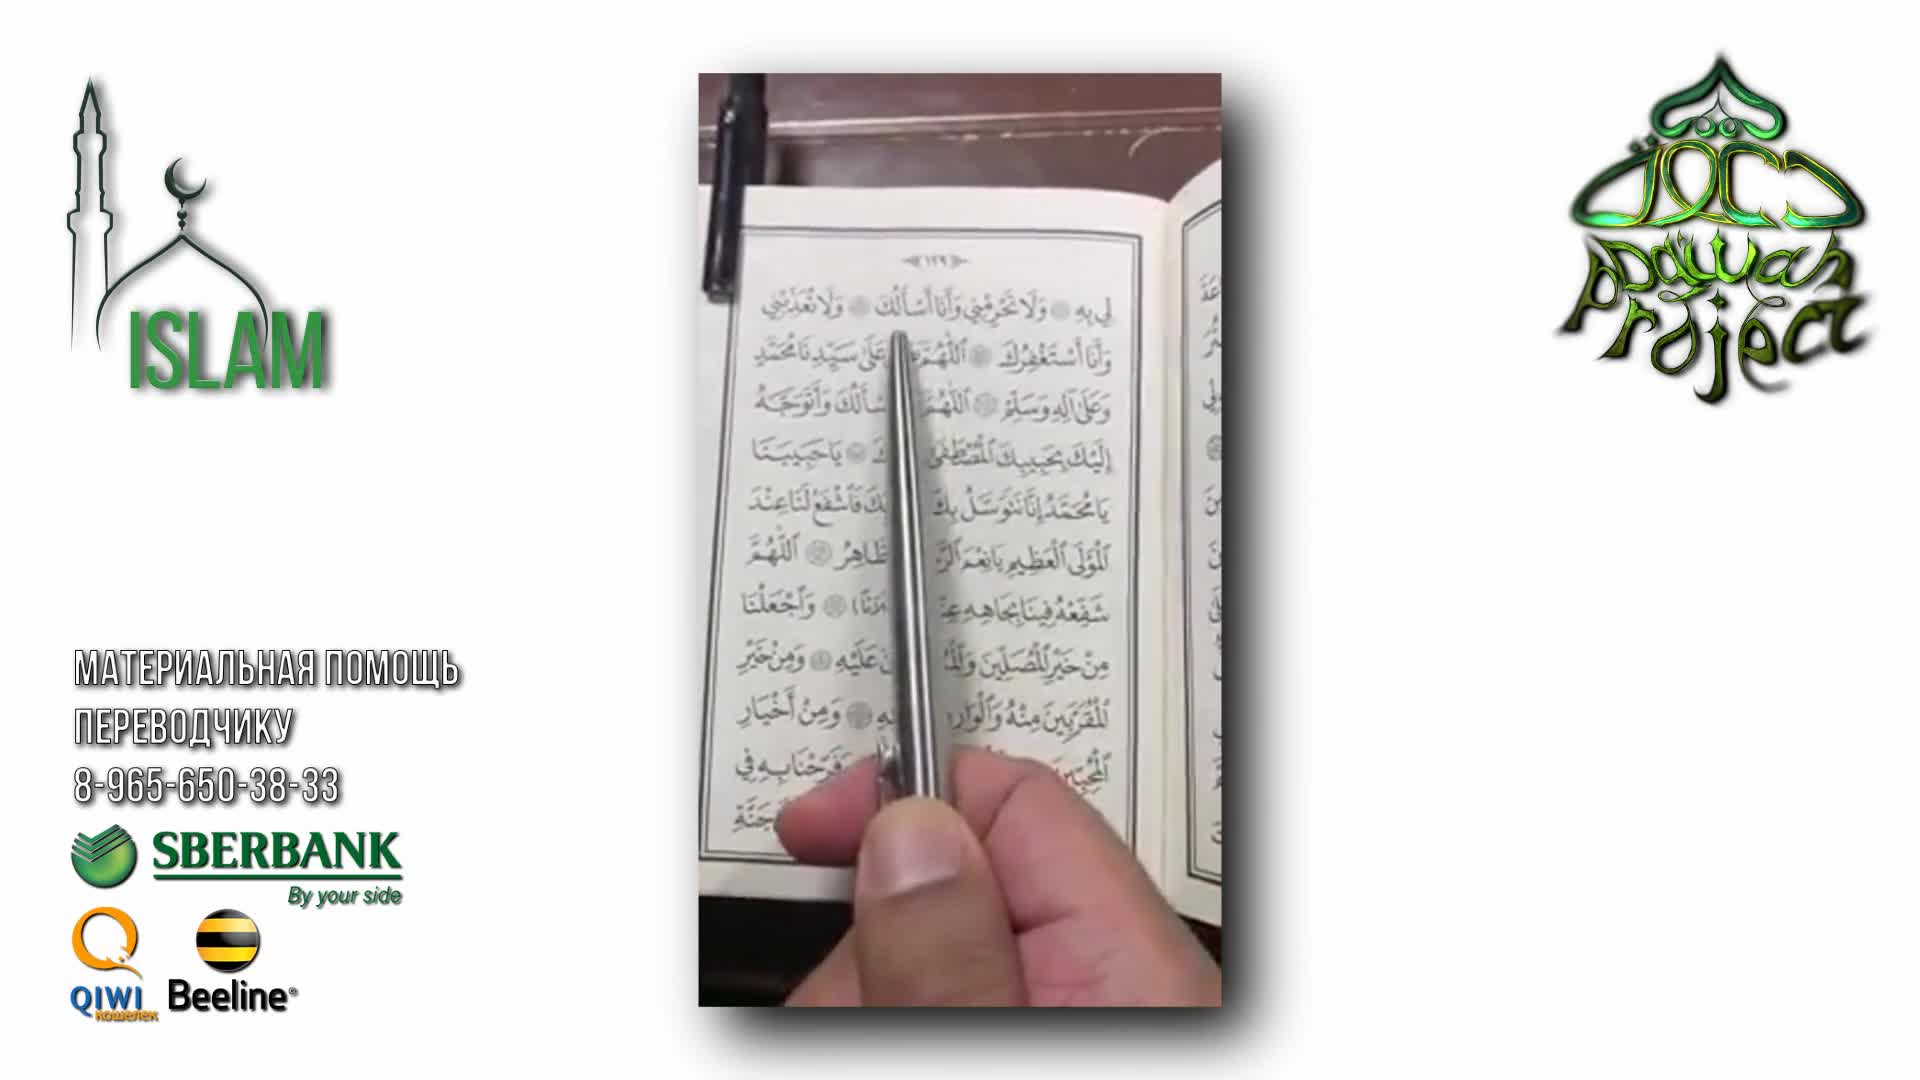 ISLAM
МАТЕРИАЛЬНАЯ ПОМОЩЬ
ПЕРЕВОДЧИКУ
8-965-650-38-33
SBERBANK
By your side
QIWI
кошелек
Beeline
١٢٩
لِي بِهِ وَلَا تَحْرِمْنِي وَأَنَا أَسْأَلُكَ وَلَا تُعَذِّبْنِي
وَأَنَا أَسْتَغْفِرُكَ اَللّٰهُمَّ عَلَى سَيِّدِنَا مُحَمَّدٍ
وَعَلَى آلِهِ وَسَلِّمْ اَللّٰهُمَّ وَأَتَوَجَّهُ
إِلَيْكَ بِحَبِيبِكَ الْمُصْطَفَى يَا حَبِيبَنَا
يَا مُحَمَّدُ إِنَّا نَتَوَسَّلُ بِكَ فَاشْفَعْ لَنَا عِنْدَ
الْمَوْلَى الْعَظِيمِ يَا نِعْمَ اَللّٰهُمَّ
شَفِّعْهُ فِينَا بِجَاهِهِ وَاجْعَلْنَا
مِنْ خَيْرِ الْمُصَلِّينَ عَلَيْهِ وَمِنْ خَيْرِ
الْمُقَرَّبِينَ مِنْهُ وَمِنْ أَخْيَارِ
الْمُحِبِّينَ وَفَرِّحْنَا بِهِ فِي
دعوة
Dawah
Project